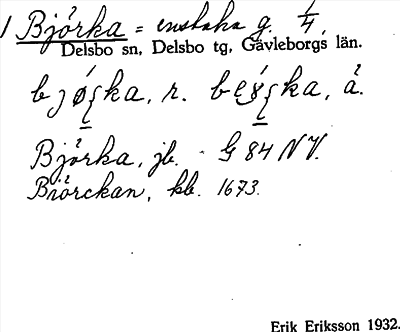 1 Björka = enstaka g. 1/4,
Delsbo sn, Delsbo tg, Gävleborgs län.
ka, r. ka, å.
Björka, jb. G 84 NV.
Biörckan, kb. 1673.
Erik Eriksson 1932.